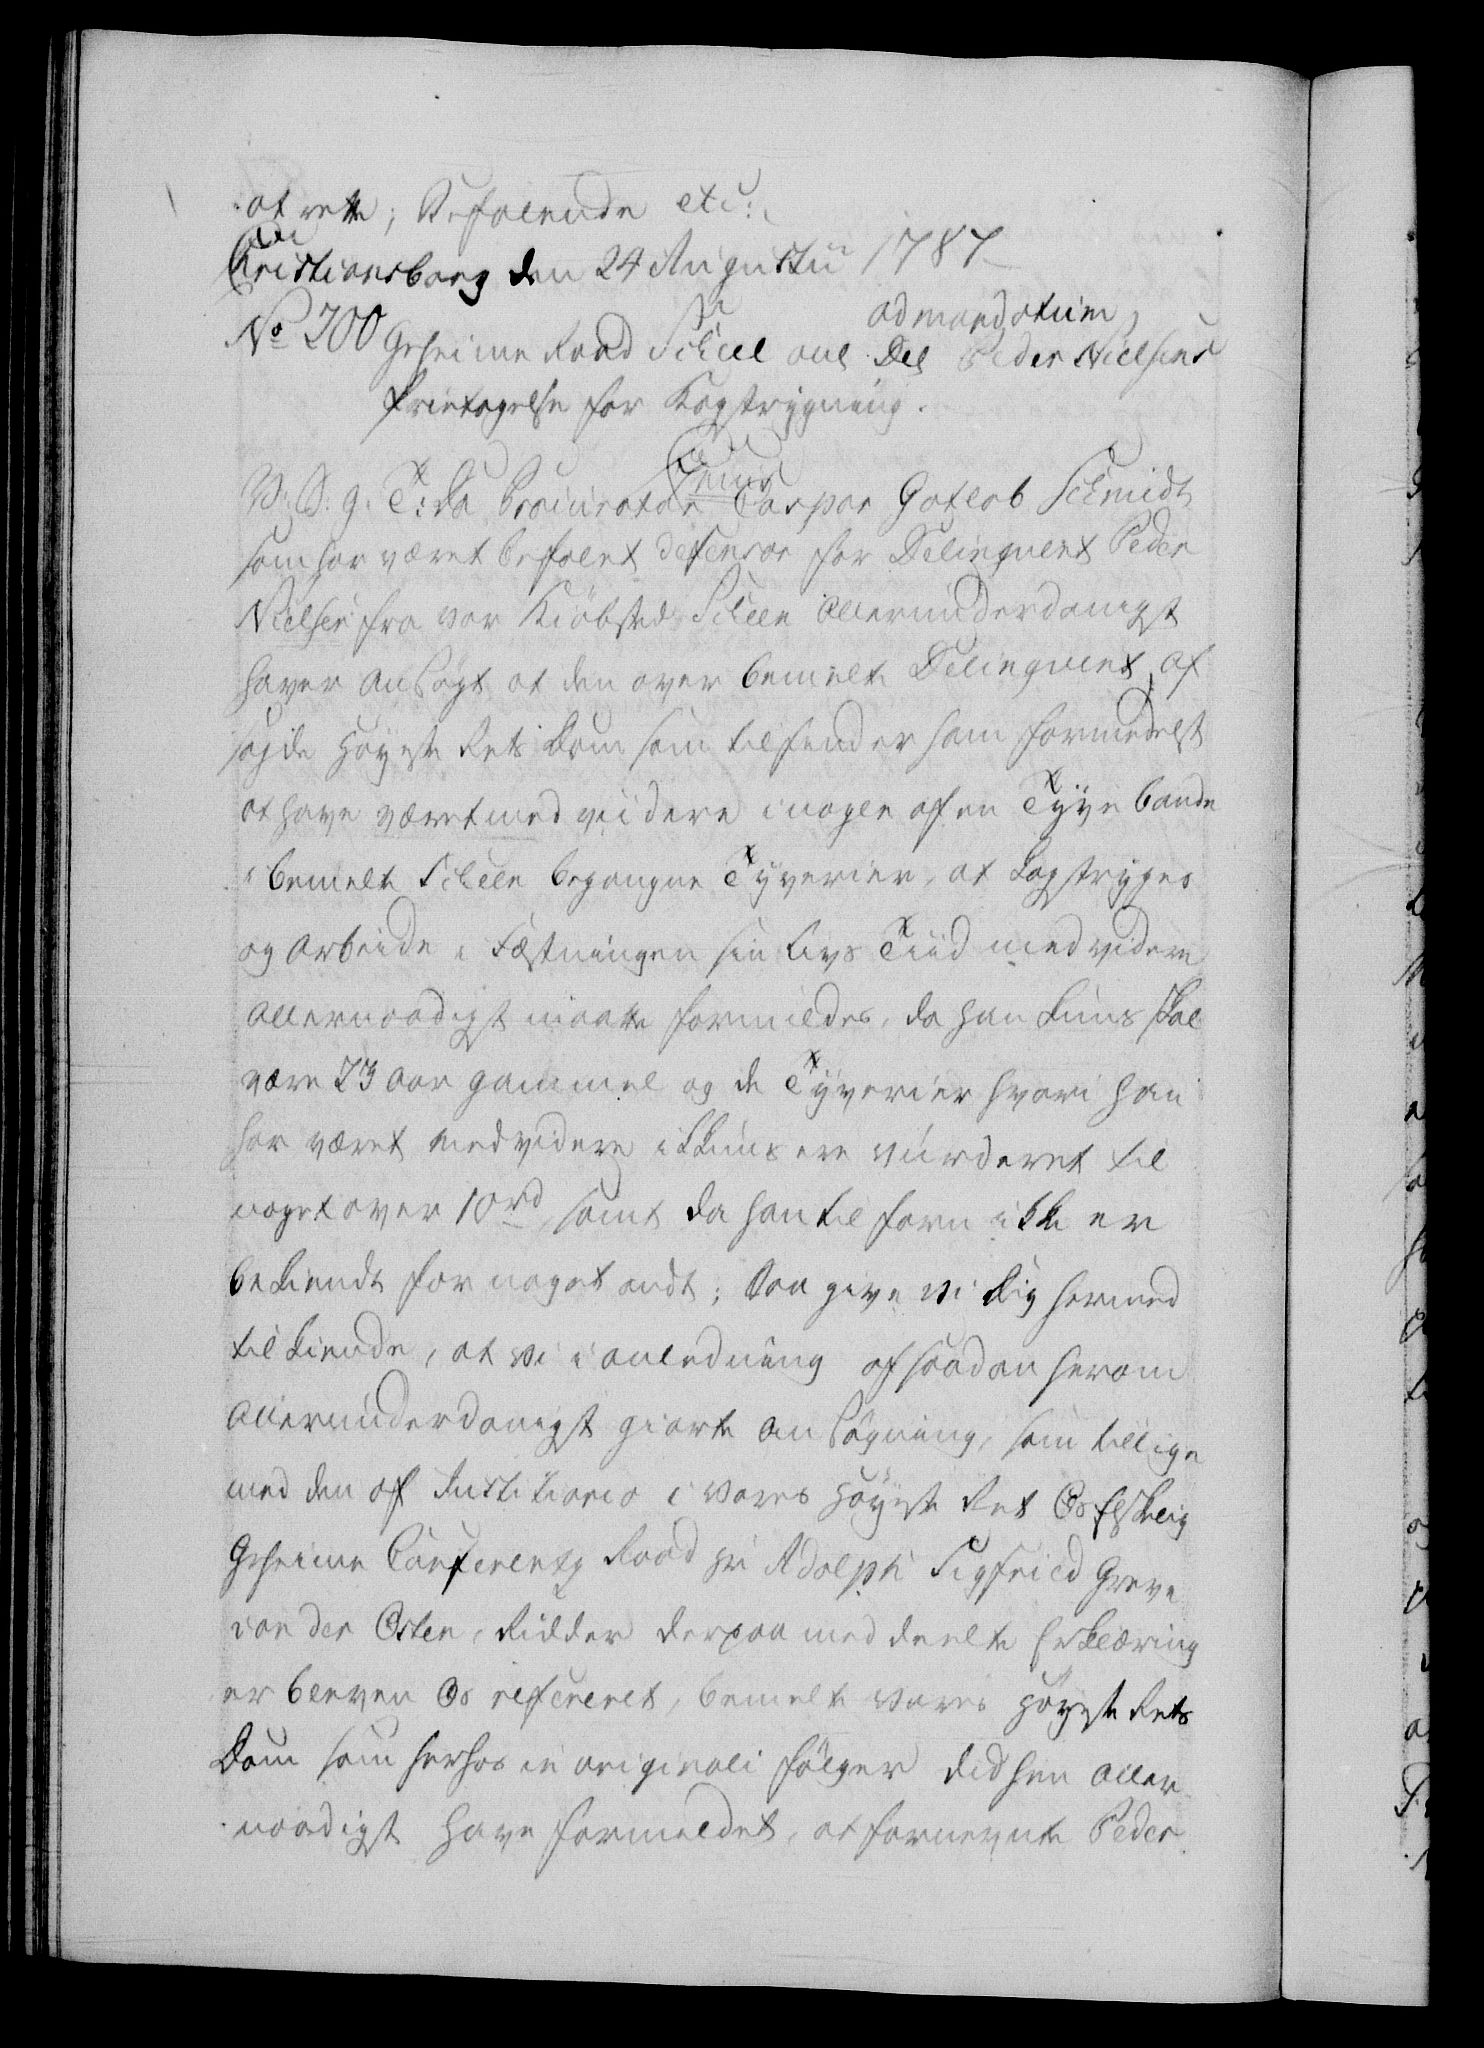 at rette; Befalende etc:
Christiansborg den 24 Augustii 1787
ad mandatum
No 200 Geheime Raad Schul anl. Del Peder Nielsens
fritagelse for Kagstrygning.
V: S: g: T: Da Procurator Jens Caspar Gotlob Schmidt
som har været befalet defensor for Delinqvent Peder
Nielsen fra vor Kiöbsted Scheen allerunderdanigst
haver ansögt at den over bemelte Delinqvent af
sagde Höyeste Rets Dom som tilfinder ham formedelst
at have været med viidere i nogle af en Tyve bande
i bemelte Scheen begangne Tyverier, at kagstryges
og arbeide i Fæstningen sin Livs Tiid med videre
allernaadigst maatte formildes, da han kuns skal
være 23 aar gammel og de Tyverier hvori han
har været medvidere ikkuns ere vurderet til
noget over 10 rd, samt da han tilforn ikke er
bekiendt for noget ondt; Saa give vi dig hermed
tilkiende, at vi i anledning af saadan herom
allerunderdanigst giorte ansögning, som tillige
med den af Justitiario i vores Höyeste Ret Os Elskelig
Geheime Conferentz Raad Hr Adolph Sigfried Greve
von der Osten, Ridder derpaa meddeelte Erklæring
er bleven Os refereret, bemelte vores Höyeste Rets
Dom som herhos in originali fölger didhen aller
naadigst have formildet, at fornevnte Peder